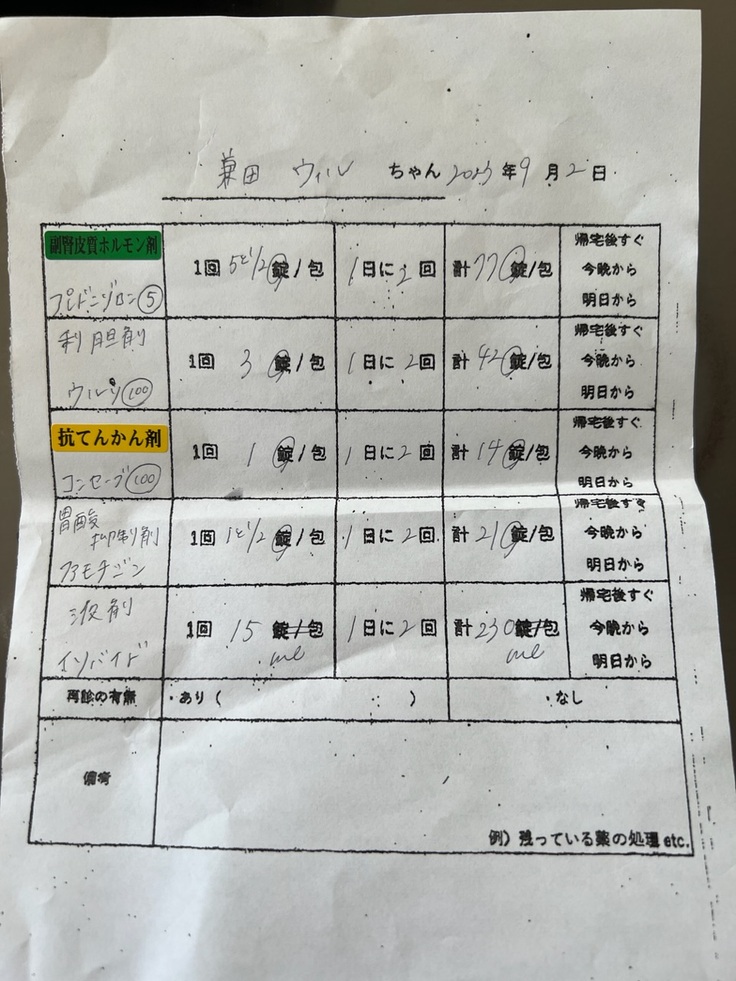 兼田 ウィル ちゃん 2023年9月2日
副腎皮質ホルモン剤
プレドニゾロン⑤
1回 5と1/2 錠/包 1日に2回 計77錠/包
帰宅後すぐ
今晩から
明日から
利胆剤
ウルソ(100)
1回 3 錠/包 1日に2回 計42錠/包
帰宅後すぐ
今晩から
明日から
抗てんかん剤
コンセーブ(100)
1回 1 錠/包 1日に2回 計14錠/包
帰宅後すぐ
今晩から
明日から
胃酸
抑制剤
ファモチジン
1回 1と1/2 錠/包 1日に2回 計21錠/包
帰宅後すぐ
今晩から
明日から
液剤
イソバイド
1回 15 錠/包 1日に2回 計230錠/包
ml ml
帰宅後すぐ
今晩から
明日から
再診の有無 ・あり( ) ・なし
備考
例)残っている薬の処理etc.